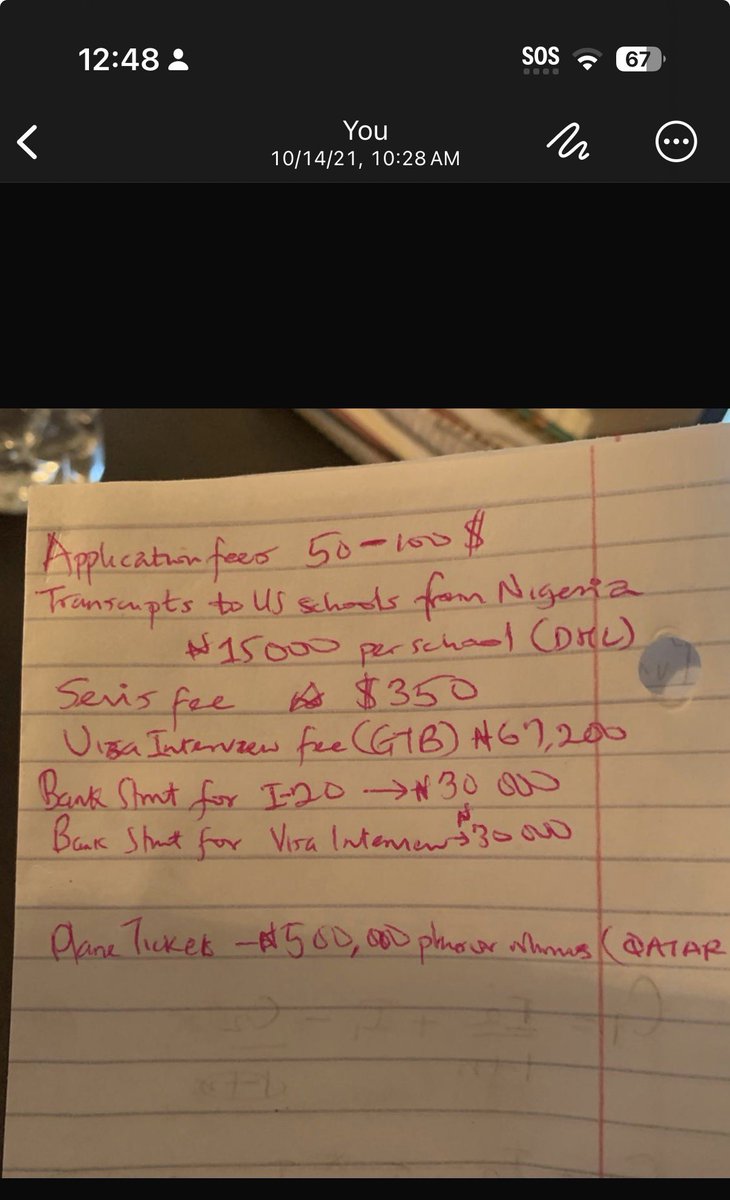 12:48
SOS
67
You
10/14/21, 10:28 AM
Application fees 50-100 $
Transcripts to US schools from Nigeria
₦15000 per school (DHL)
Sevis fee $350
Visa Interview fee (GTB) ₦67,200
Bank Stmt for I-20 → ₦30 000
Bank Stmt for Visa Interview → ₦30 000
Plane Ticket - ₦500,000 plus or minus (QATAR